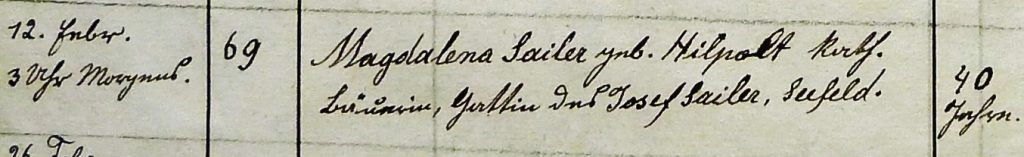 12. Febr.
3 Uhr Morgens.
69
Magdalena Sailer geb. Hilpolt kath.
Bäuerin, Gattin des Josef Sailer, Seefeld.
40
Jahre.
26. Febr.